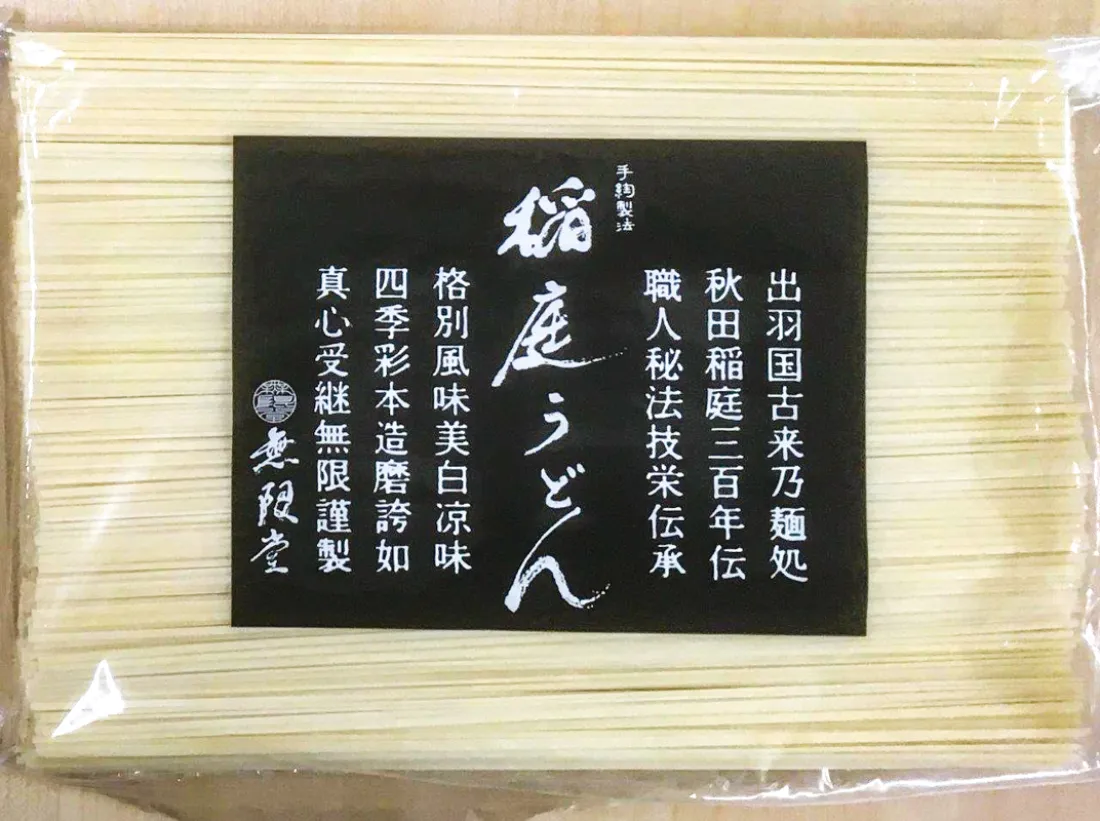 出羽国古来乃麺処
秋田稲庭三百年伝
職人秘法技栄伝承
手綯製法
稲庭うどん
格別風味美白涼味
四季彩本造磨誇如
真心受継無限謹製
無限堂